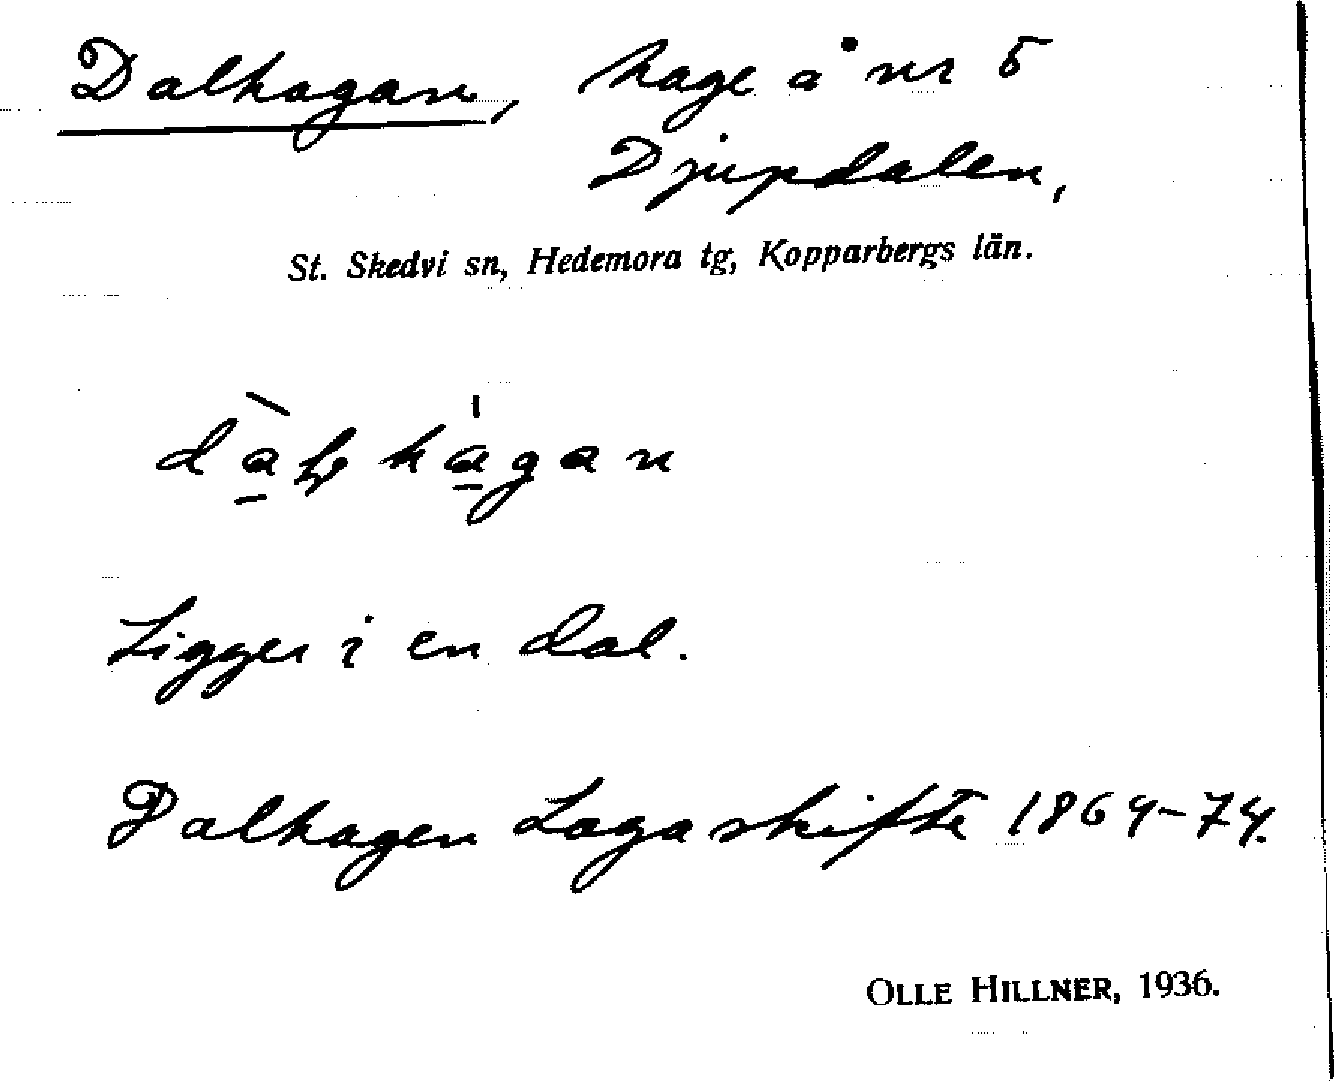 Dalhagan, hage å nr 5
Djupdalen,
St. Skedvi sn, Hedemora tg, Kopparbergs län.
Ligger i en dal.
Dalhagen Laga skifte 1864-74.
OLLE HILLNER, 1936.